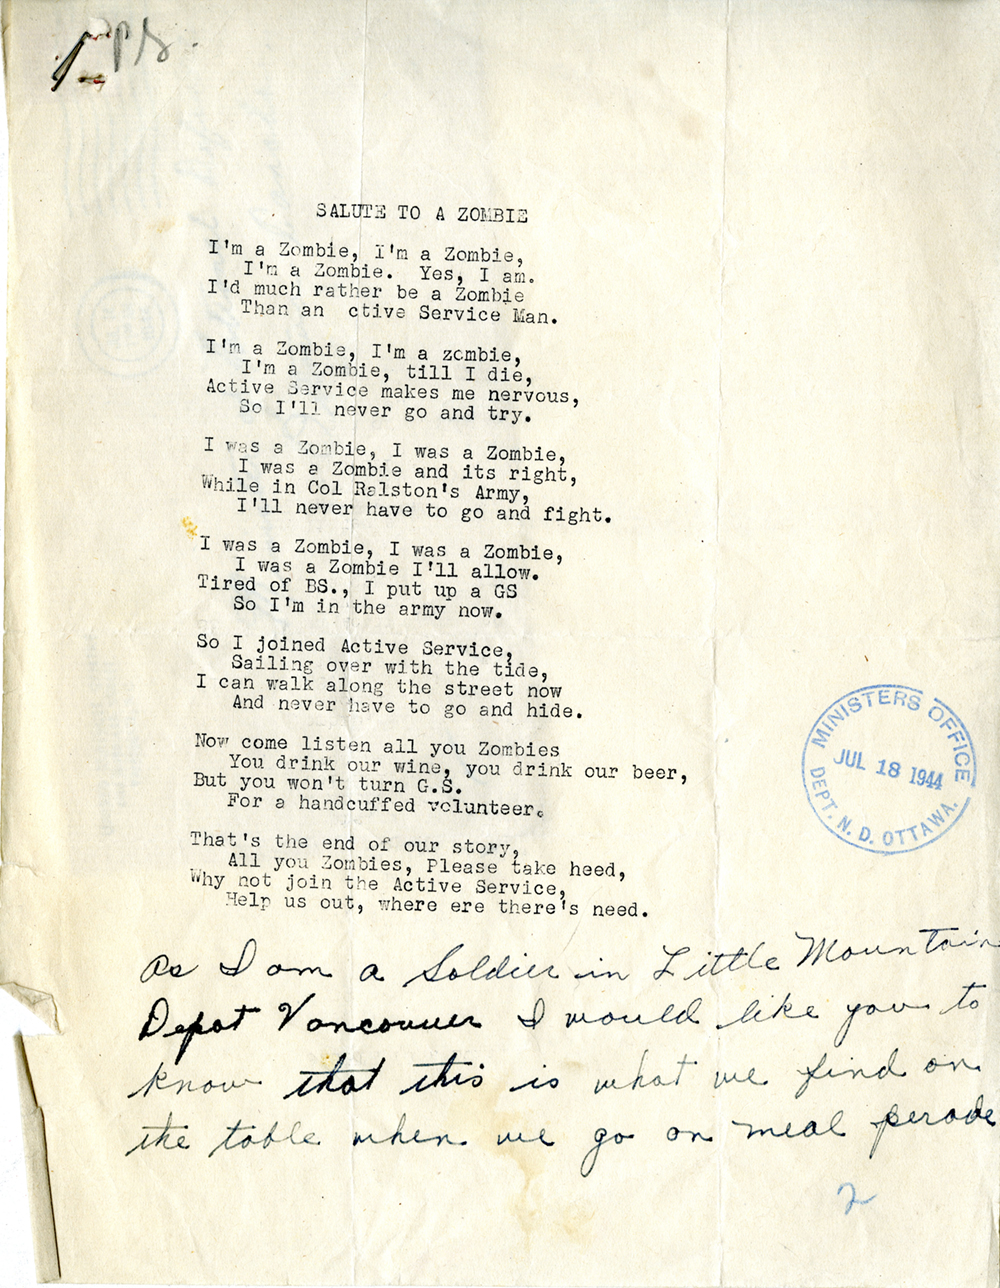 SALUTE TO A ZOMBIE
I'm a Zombie, I'm a Zombie,
I'm a Zombie. Yes, I am.
I'd much rather be a Zombie
Than an ctive Service Man.
I'm a Zombie, I'm a zombie,
I'm a Zombie, till I die,
Active Service makes me nervous,
So I'll never go and try.
I was a Zombie, I was a Zombie,
I was a Zombie and its right,
While in Col Ralston's Army,
I'll never have to go and fight.
I was a Zombie, I was a Zombie,
I was a Zombie I'll allow.
Tired of BS., I put up a GS
So I'm in the army now.
So I joined Active Service,
Sailing over with the tide,
I can walk along the street now
And never have to go and hide.
Now come listen all you Zombies
You drink our wine, you drink our beer,
But you won't turn G.S.
For a handcuffed volunteer.
That's the end of our story,
All you Zombies, Please take heed,
Why not join the Active Service,
Help us out, where ere there's need.
MINISTERS OFFICE
JUL 18 1944
DEPT. N. D. OTTAWA.
As I am a Soldier in Little Mountain
Depot Vancouver I would like you to
know that this is what we find on
the table when we go on meal perade
2